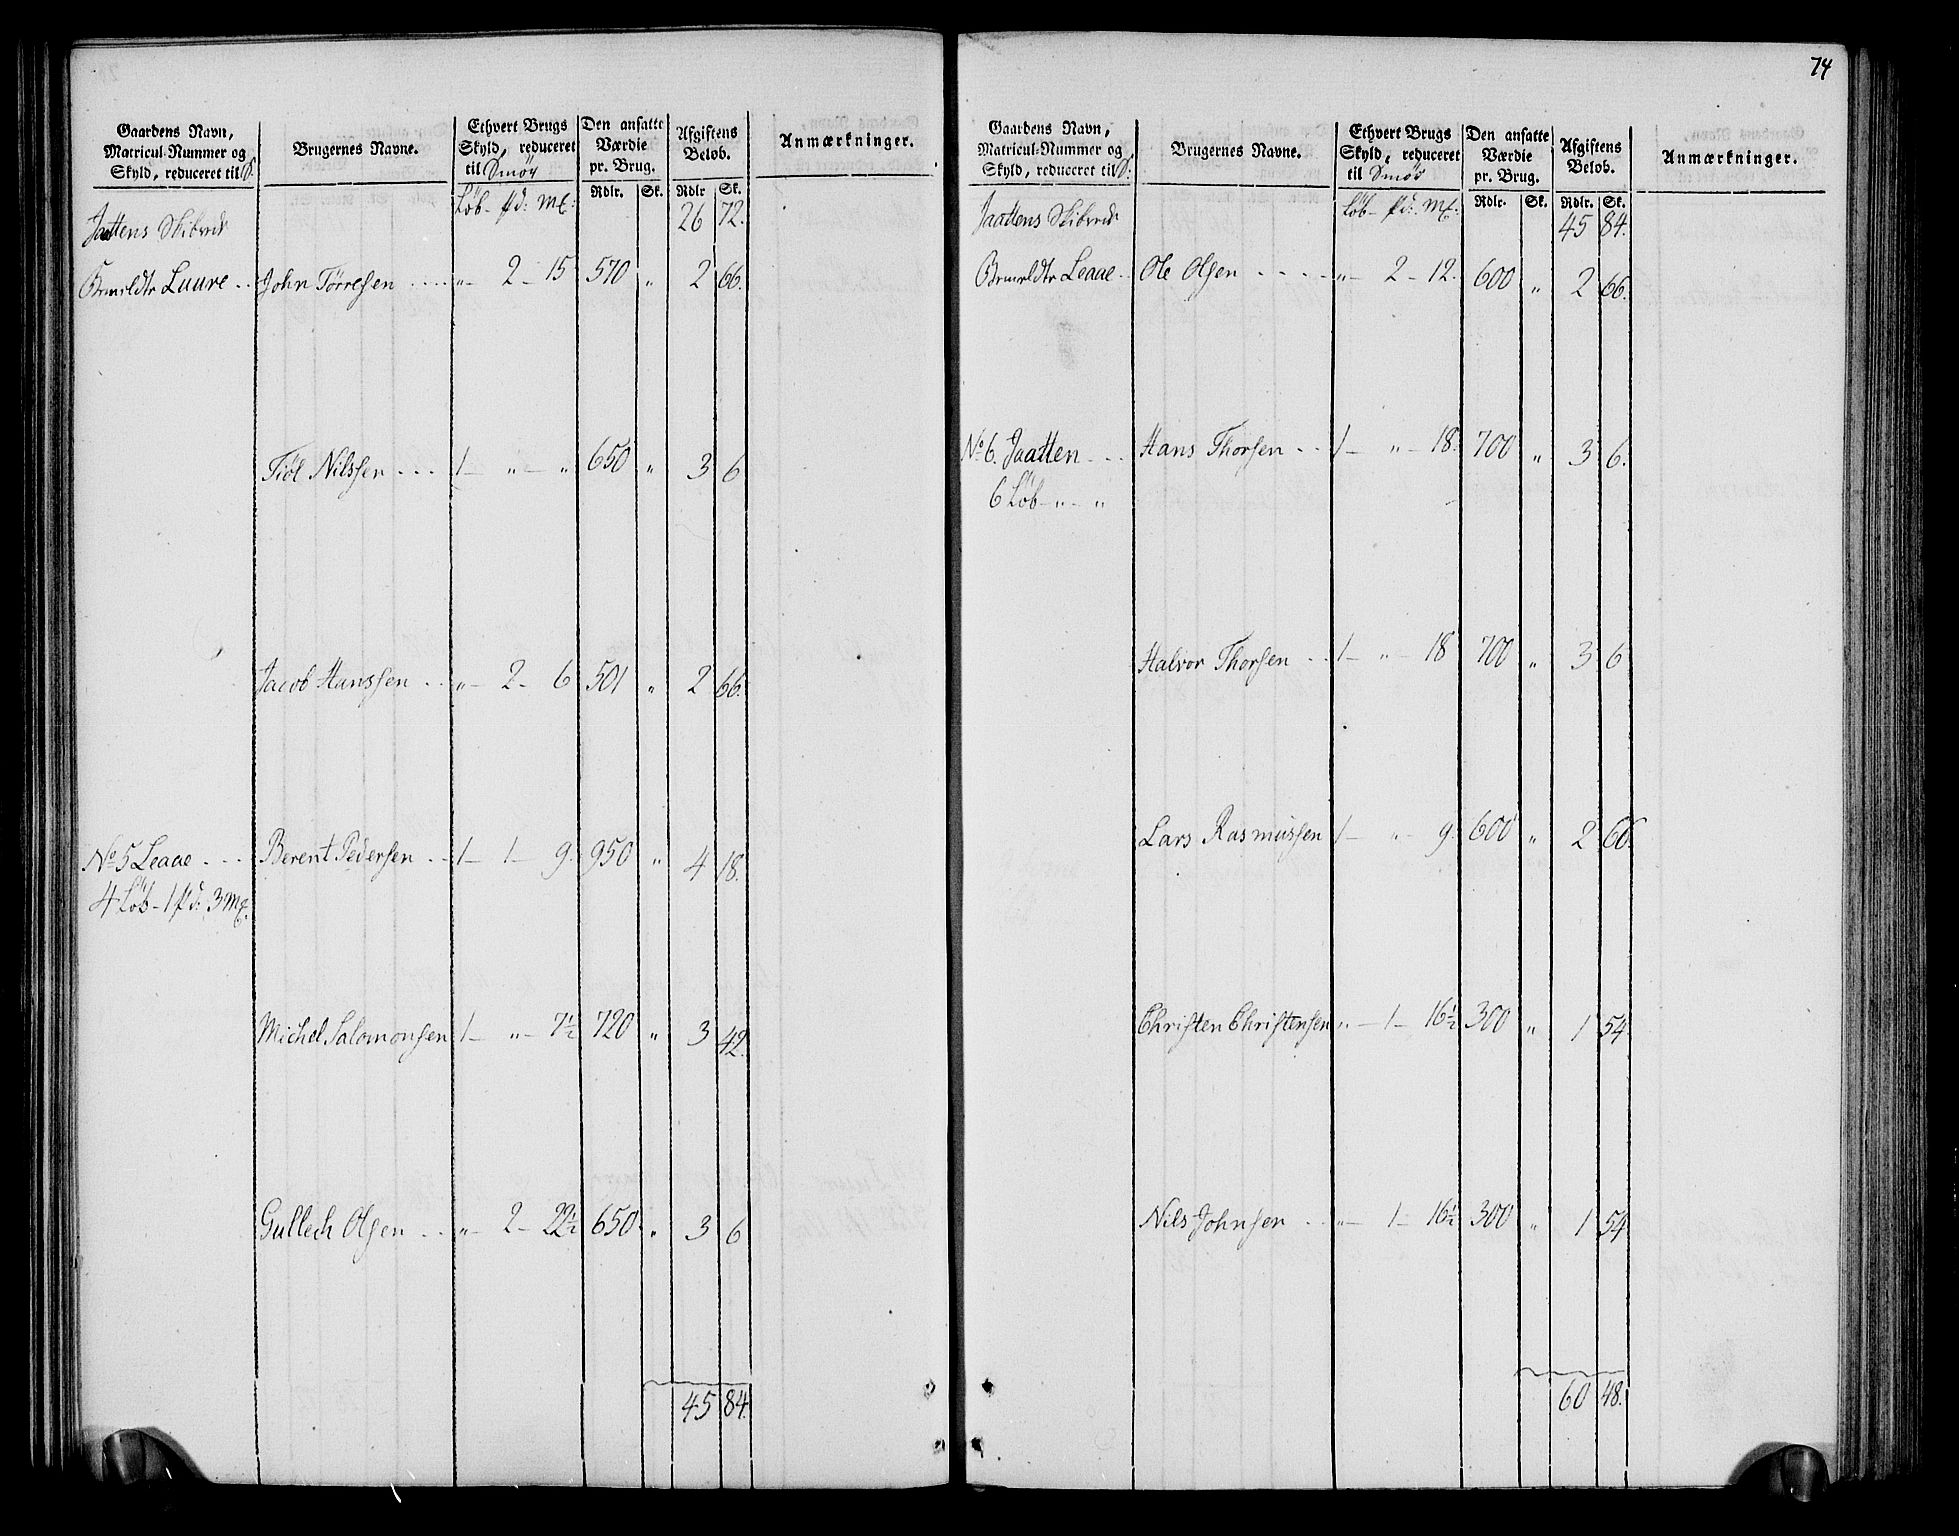 Gaardens Navn, Matricul-Nummer og Skyld, reduceret til S. | Brugernes Navne. | Ethvert Brugs Skyld, reduceret til Smör | Den ansatte Værdie pr. Brug. | Afgiftens Beløb. | Anmærkninger.
Löb - pd: mk: | Rdlr. | Sk. | Rdlr | Sk.
Jaattens Skibrede 26 72.
Luure .. John Törresen .... „ - 2 - 15 570 „ 2 66.
Tiöl Nilssen ... 1 - „ - „ 650 „ 3 6
Jacob Hanssen .. „ - 2 - 6 501 „ 2 66.
No 5 Leaae ... Berent Pedersen .. 1 - 1 - 9. 950 „ 4 18.
4 Löb - 1 pd: 3 mk.
Michel Salomonsen 1 - „ - 7½ 720 „ 3 42.
Gullech Olsen .. „ - 2 - 22½ 650 „ 3 6
45 84.
74
Gaardens Navn, Matricul-Nummer og Skyld, reduceret til S: | Brugernes Navne. | Ethvert Brugs Skyld, reduceret til Smör | Den ansatte Værdie pr. Brug. | Afgiftens Beløb. | Anmærkninger.
Löb - pd: mk: | Rdlr. | Sk. | Rdlr. | Sk.
Jaattens Skibrede 45 84.
Leaae .. Ole Olsen .... „ - 2 - 12. 600 „ 2 66.
No 6. Jaatten ... Hans Thorsen .. 1 - „ - 18. 700 „ 3 6.
6 Löb - „ - „
Halvor Thorsen .. 1 - „ - 18 700 „ 3 6
Lars Rasmussen 1 - „ - 9. 600 „ 2 66.
Christen Christensen „ - 1 - 16½ 300 „ 1 54
Nils Johnsen .. „ - 1 - 16½ 300 „ 1 54
60 48.